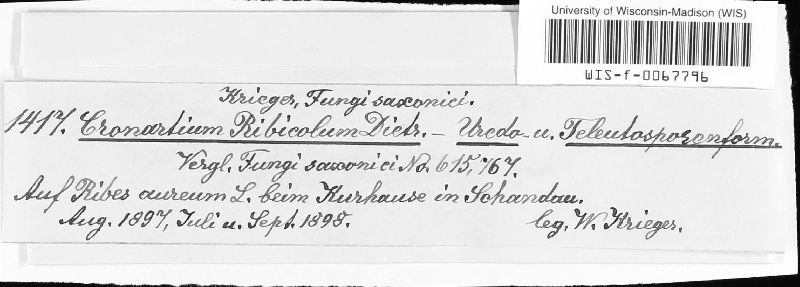 University of Wisconsin-Madison (WIS)
WIS-f-0067796
Krieger, Fungi saxonici.
1417. Cronartium Ribicolum Dietr. – Uredo- u. Teleutosporenform.
Vergl. Fungi saxonici No. 615, 767.
Auf Ribes aureum L. beim Kurhause in Schandau.
Aug. 1897, Juli u. Sept. 1898. leg. W. Krieger.